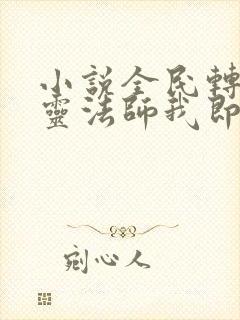 小說全民轉
靈法師我即
剜心人